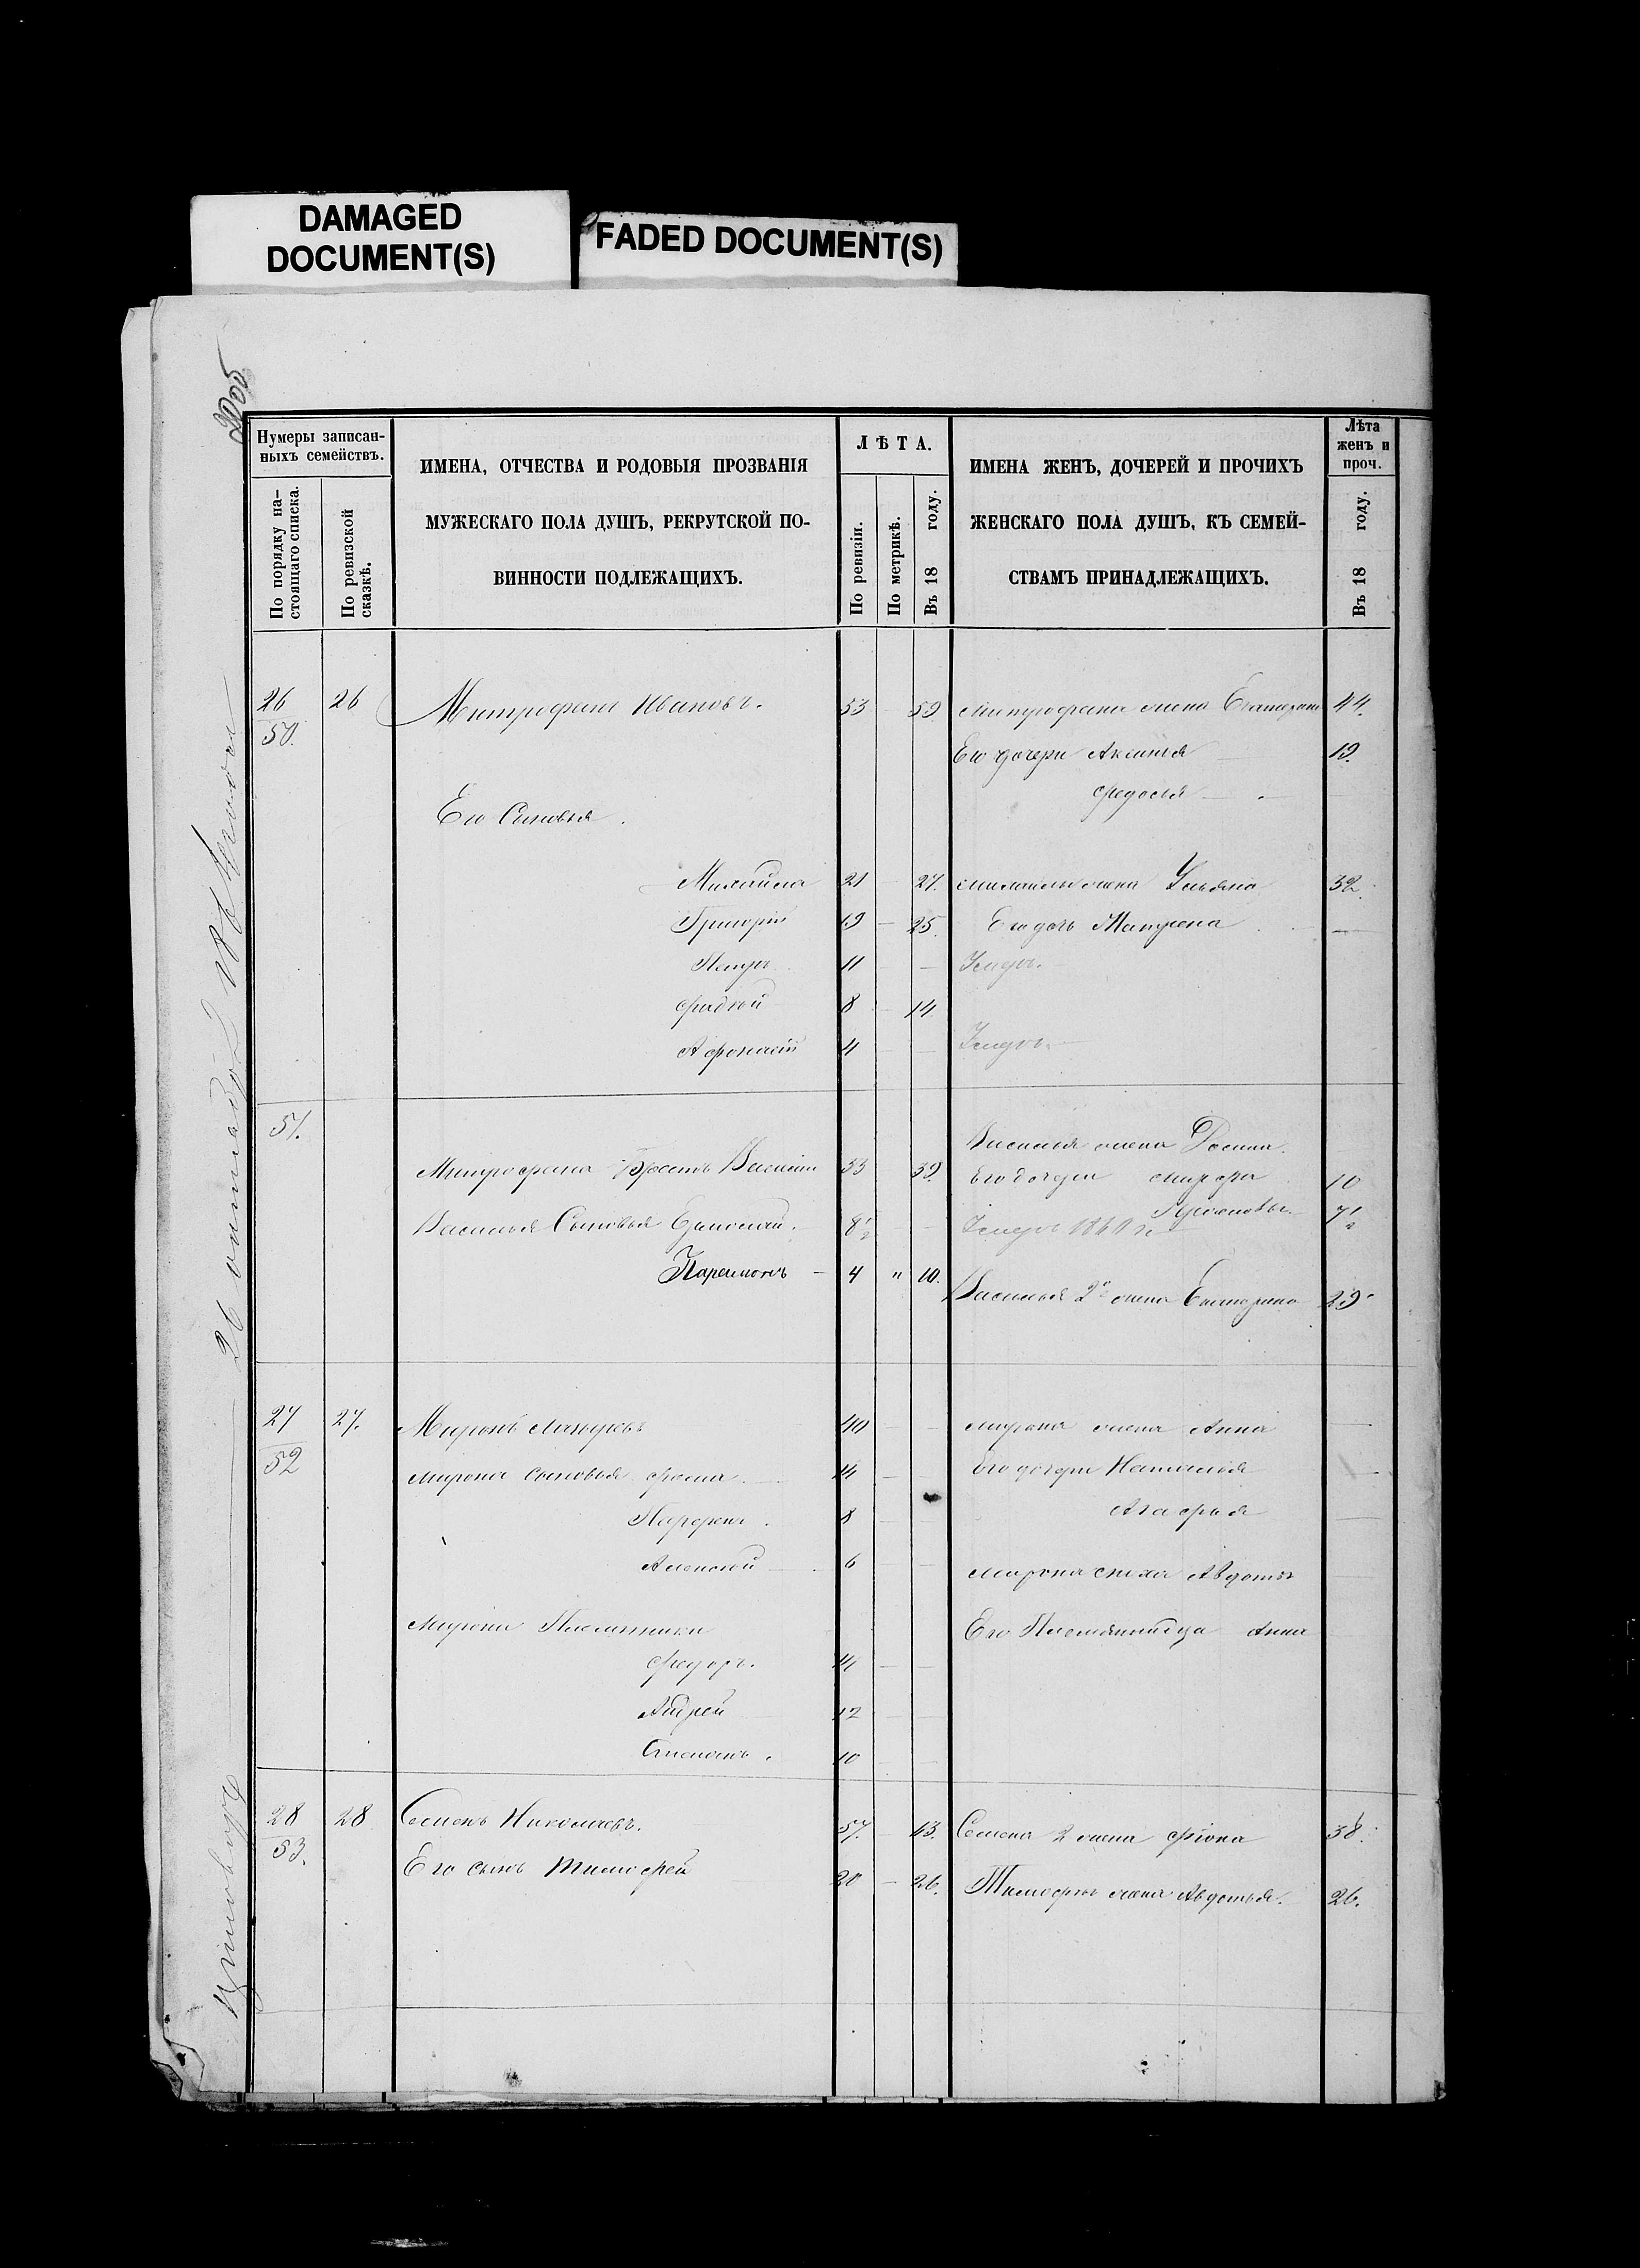 DAMAGED
DOCUMENT(S)
FADED DOCUMENT(S)
Нумеры записан-
ныхъ семействъ.
По порядку на-
стоящаго списка.
По ревизской
сказкѣ.
ИМЕНА, ОТЧЕСТВА И РОДОВЫЯ ПРОЗВАНІЯ
МУЖЕСКАГО ПОЛА ДУШЪ, РЕКРУТСКОЙ ПО-
ВИННОСТИ ПОДЛЕЖАЩИХЪ.
ЛѢТА.
По ревизіи.
По метрикѣ.
Въ 18 году.
ИМЕНА ЖЕНЪ, ДОЧЕРЕЙ И ПРОЧИХЪ
ЖЕНСКАГО ПОЛА ДУШЪ, КЪ СЕМЕЙ-
СТВАМЪ ПРИНАДЛЕЖАЩИХЪ.
Лѣта
женъ и
проч.
Въ 18 году.
26 26 Митрофанъ Ивановъ. 53 59 Митрофана жена Екатерина 44.
50.
Его дочери Аксинья 19.
Федосья
Его Сыновья.
Михайла 21 27. Михайлы жена Ульяна 32.
Григорій 19 25. Его дочь Матрена
Петръ 11 Умеръ.
Фадей 8 14
Афонасій 4 Умеръ.
51.
Василья жена
Митрофана братъ Василій 33 39. Его дочери Марфа 10
7 1/2
Василья Сыновья Ермолай. 8 1/2 Умеръ
Парамонъ 4 " 10.
Василья 2я жена Екатерина 29.
27 27. Миронъ 40 Мирона жена Анна
52 Мирона сыновья Фома 14 Его дочери Наталья
Парфенъ. 8 Агафья
Алексей 6 Мирона сноха Авдотья
Мирона Племянники Его Племянница Анна
Федоръ. 14
Андрей 12
Степанъ. 10
28 28 Семенъ Николаевъ. 57. 63. Семена 2 жена 38.
53.
Его сынъ Тимофей 20 26. Тимофея жена Авдотья. 26.